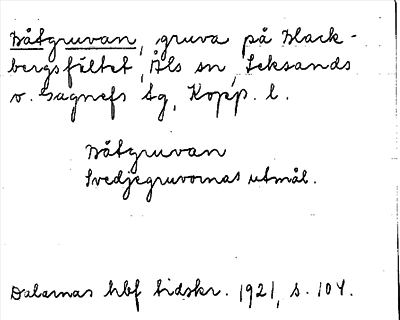 Båtgruvan, gruva på Black-
bergsfältet, Åls sn, Leksands
o. Gagnefs tg, Kopp. l.
Båtgruvan
Svedjegruvornas utmål.
Dalarnas hbf tidskr. 1921, s. 104.